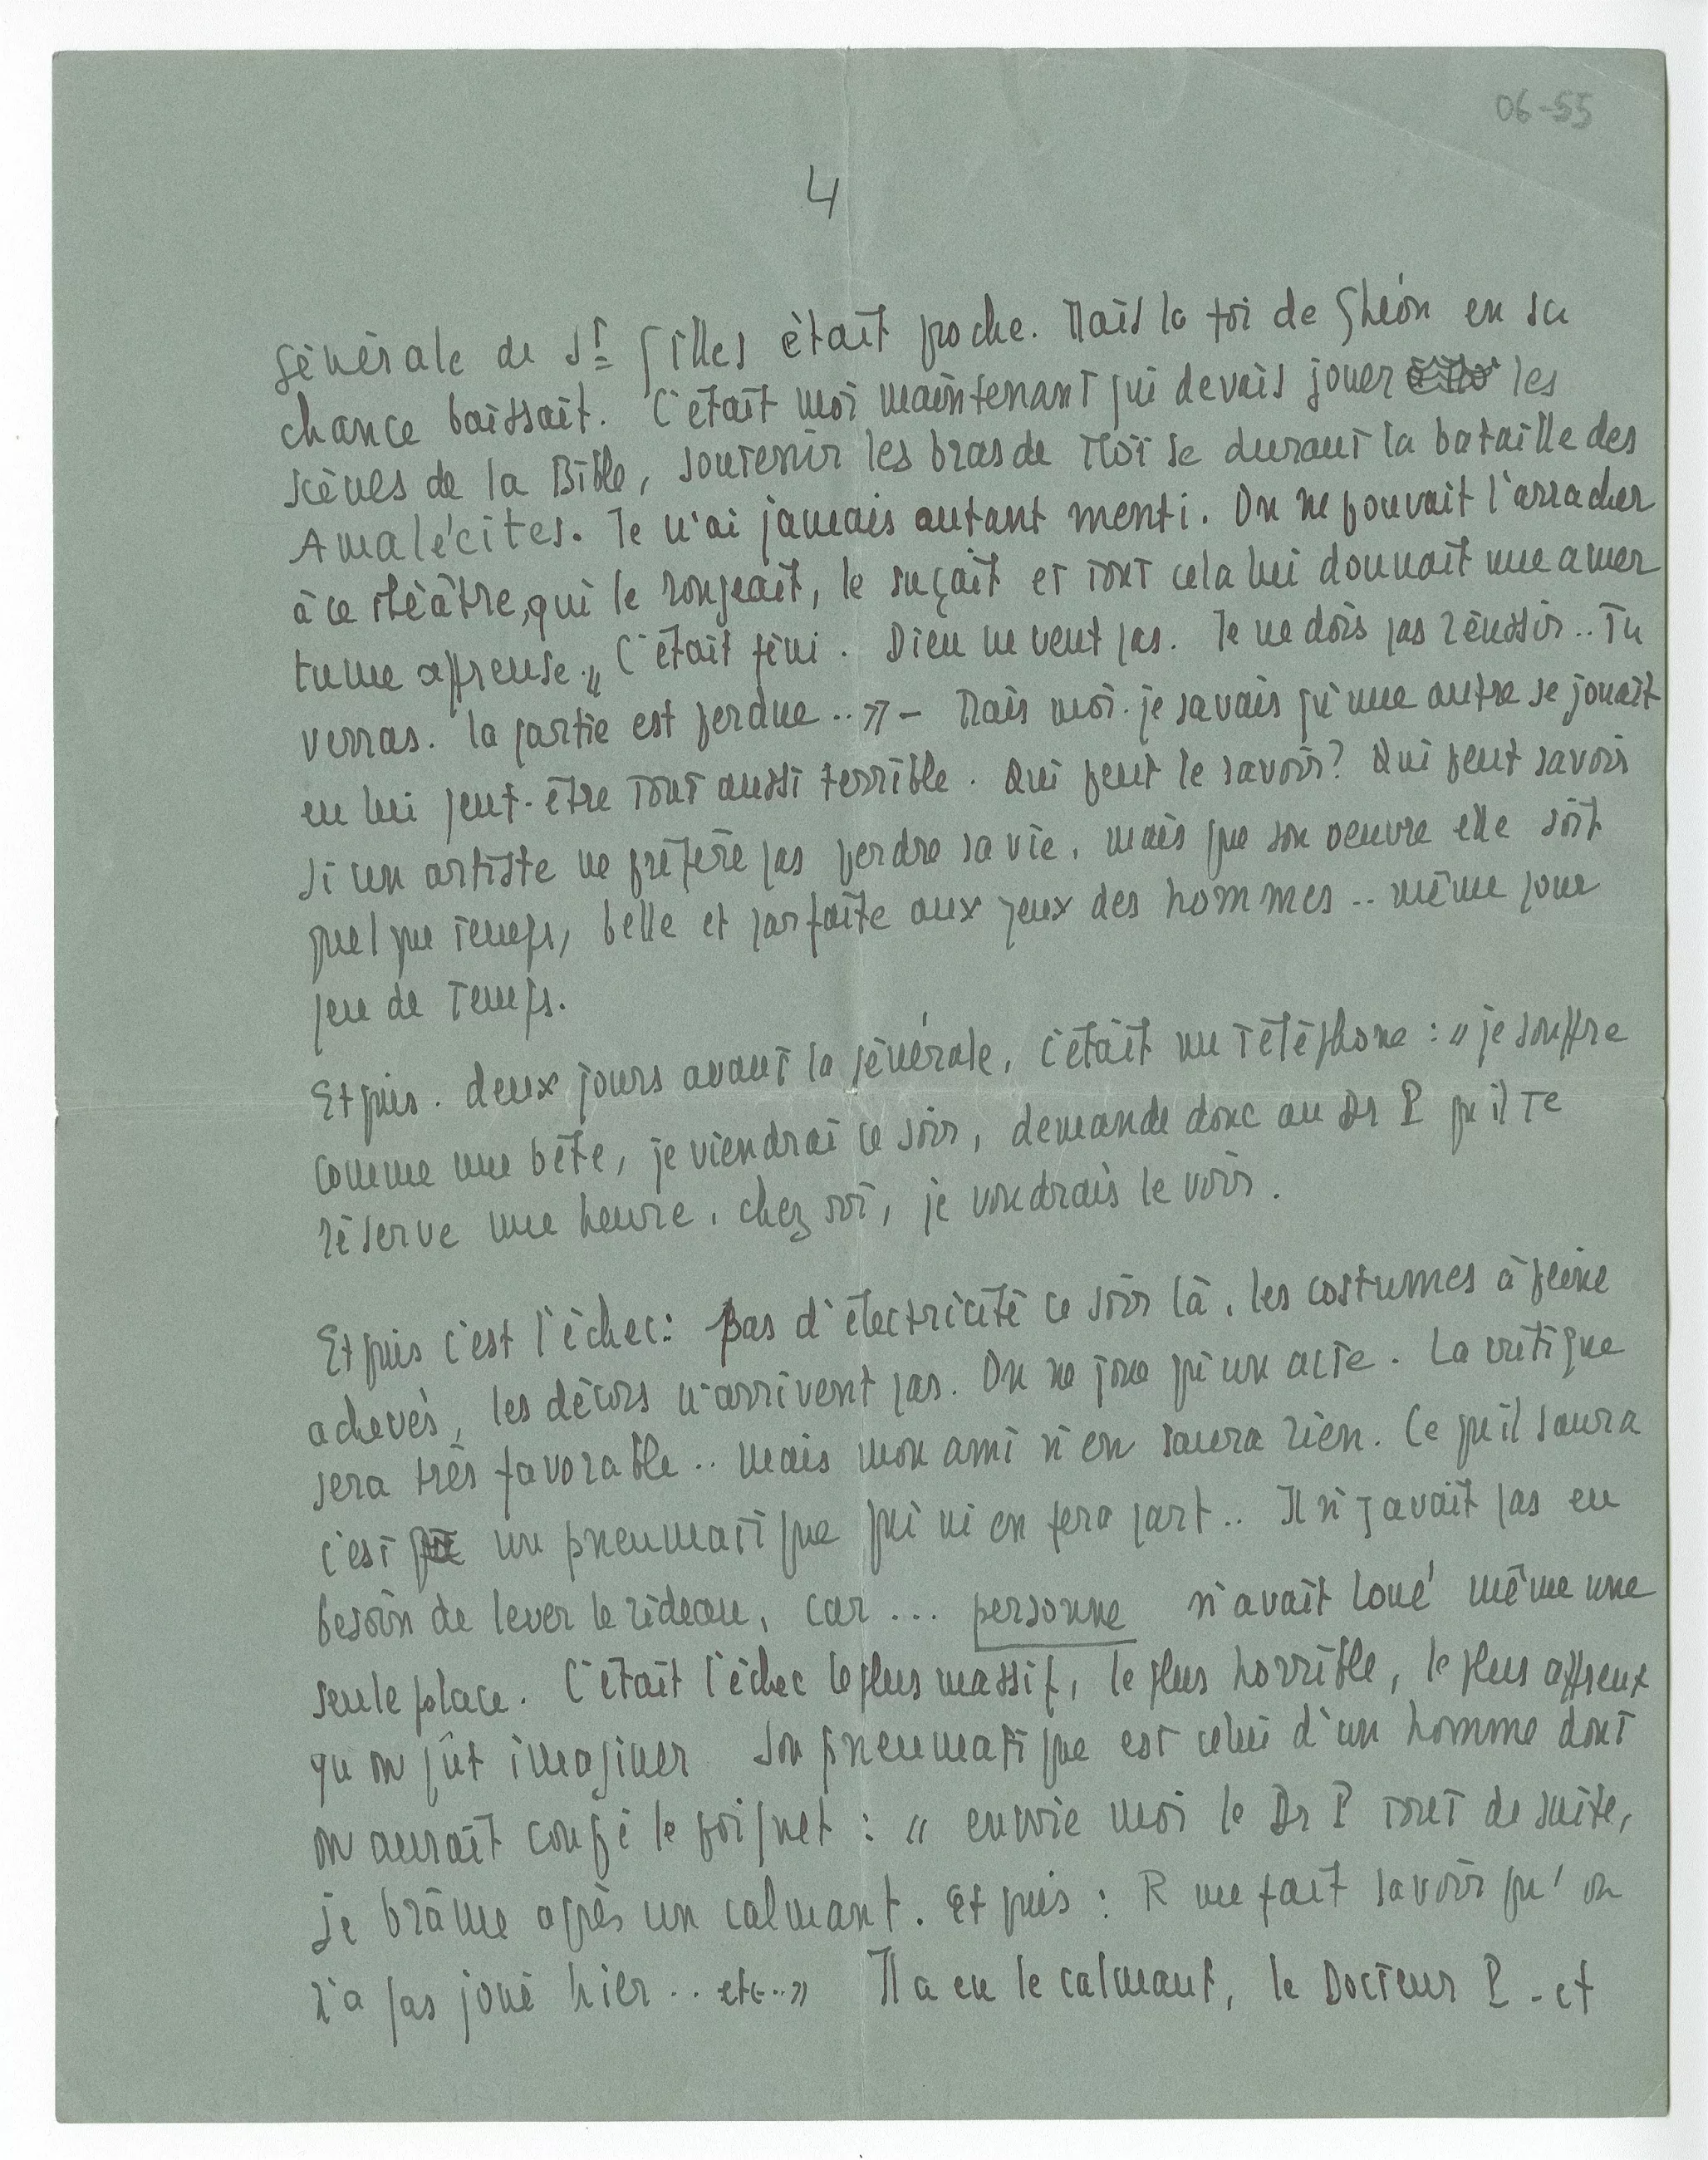 06-55
4
générale de St Gilles était proche. Mais la foi de Ghéon en sa
chance baissait. C'était moi maintenant qui devais jouer les
scènes de la Bible, soutenir les bras de Moïse durant la bataille des
Amalécites. Je n'ai jamais autant menti. On ne pouvait l'arracher
à ce théâtre, qui le rongeait, le suçait et tout cela lui donnait une amer
tume affreuse. „ C'était fini. Dieu ne veut pas. Je ne dois pas réussir.. Tu
verras. la partie est perdue..» – Mais moi. je savais qu'une autre se jouait
en lui peut-être tout aussi terrible. Qui peut le savoir? Qui peut savoir
si un artiste ne préfère pas perdre sa vie, mais que son oeuvre elle soit
quelque temps, belle et parfaite aux yeux des hommes .. même pour
peu de temps.
Et puis. deux jours avant la générale, c'était un téléphone : « je souffre
comme une bête, je viendrai ce soir, demande donc au Dr P qu'il te
réserve une heure, chez toi, je voudrais le voir.
Et puis c'est l'échec: Pas d'électricité ce soir là, les costumes à peine
achevés, les décors n'arrivent pas. On ne joue qu'un acte. La critique
sera très favorable .. mais mon ami n'en saura rien. Ce qu'il saura
c'est un pneumatique qui m'en fera part.. Il n'y avait pas eu
besoin de lever le rideau, car ... personne n'avait loué même une
seule place. C'était l'échec le plus massif, le plus horrible, le plus affreux
qu'on pût imaginer Son pneumatique est celui d'un homme dont
on aurait coupé le poignet : « envoie moi le Dr P tout de suite,
je brâme après un calmant. Et puis : R me fait savoir qu'on
n'a pas joué hier .. etc..» Il a eu le calmant, le Docteur P - et